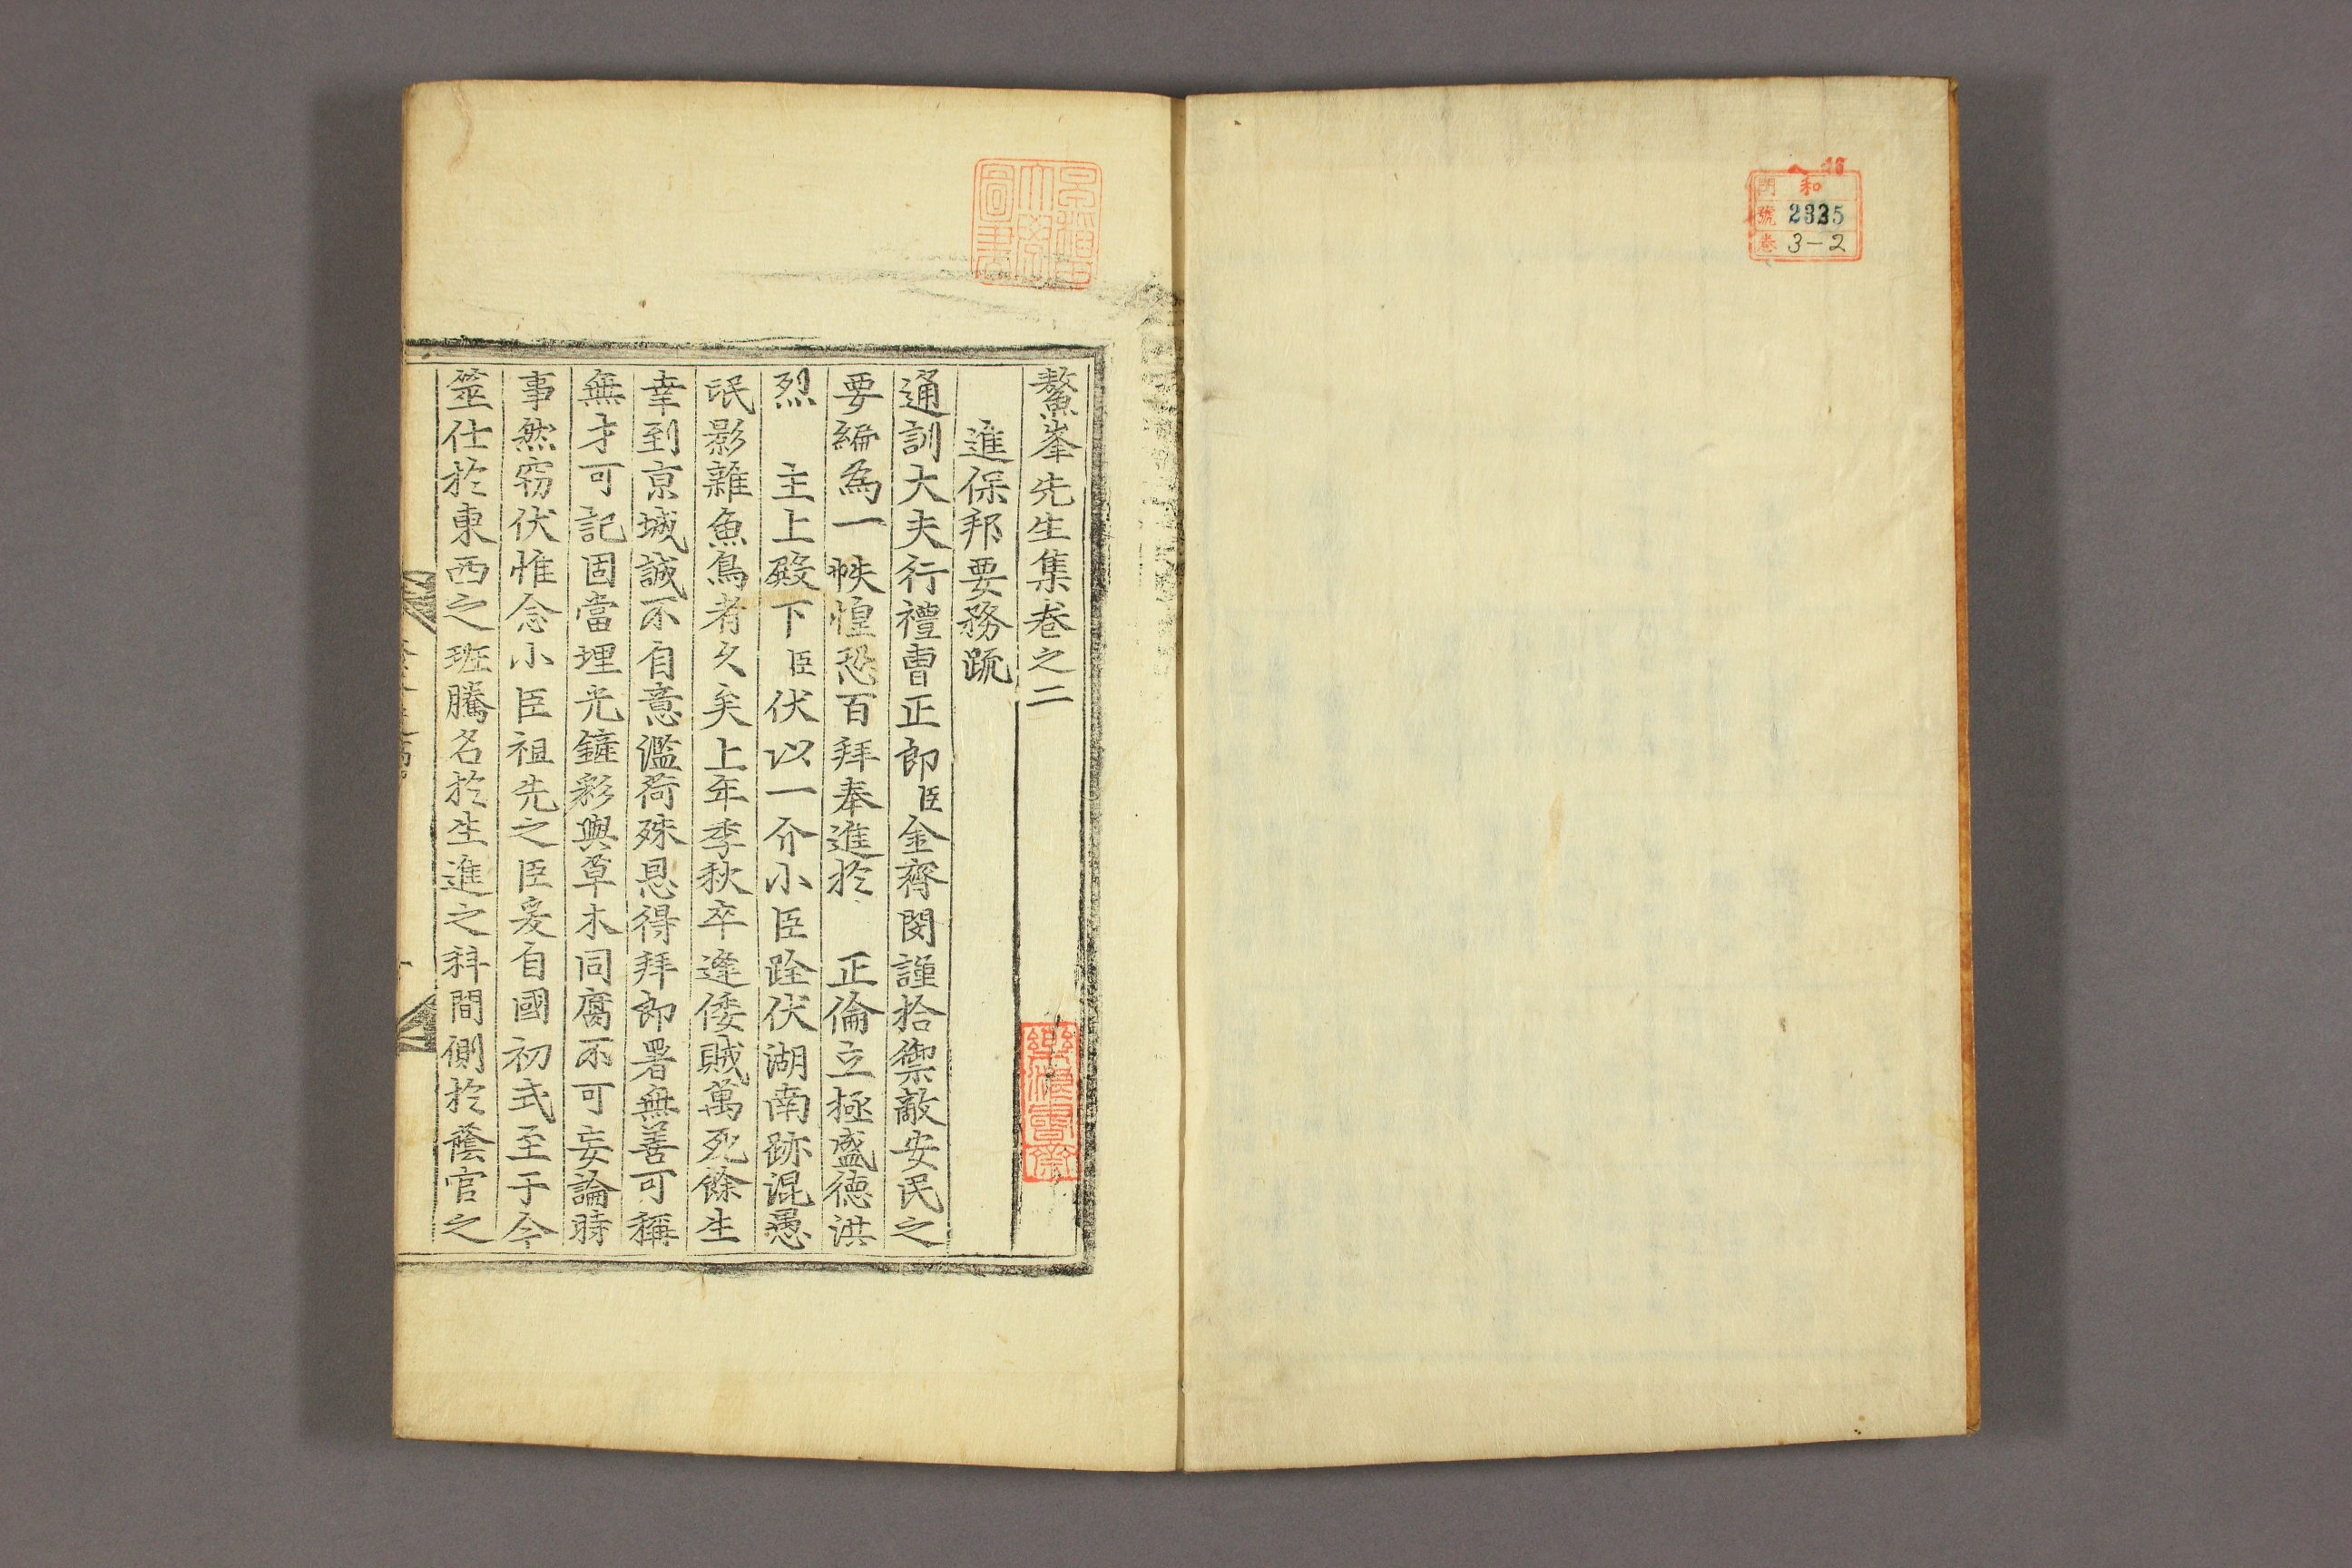 和
門
號 2325
卷 3-2
鰲峯先生集卷之二
進保邦要務䟽
通訓大夫行禮曹正郎臣金齊閔謹拾禦敵安民之
要編爲一帙惶恐百拜奉進於 正倫立極盛德洪
烈 主上殿下臣伏以一介小臣跧伏湖南跡混愚
氓影雜魚鳥者久矣上年季秋卒逢倭賊萬死餘生
幸到京城誠不自意濫荷殊恩得拜郎署無善可稱
無才可記固當埋光鏟彩與草木同腐不可妄論時
事然窃伏惟念小臣祖先之臣爰自國初式至于今
筮仕於東西之班騰名於生進之科間側於蔭官之
樂浪書齋